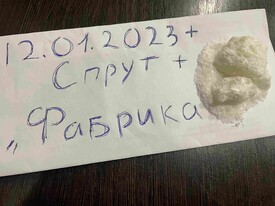 12.01.2023+
Спрут +
„Фабрика